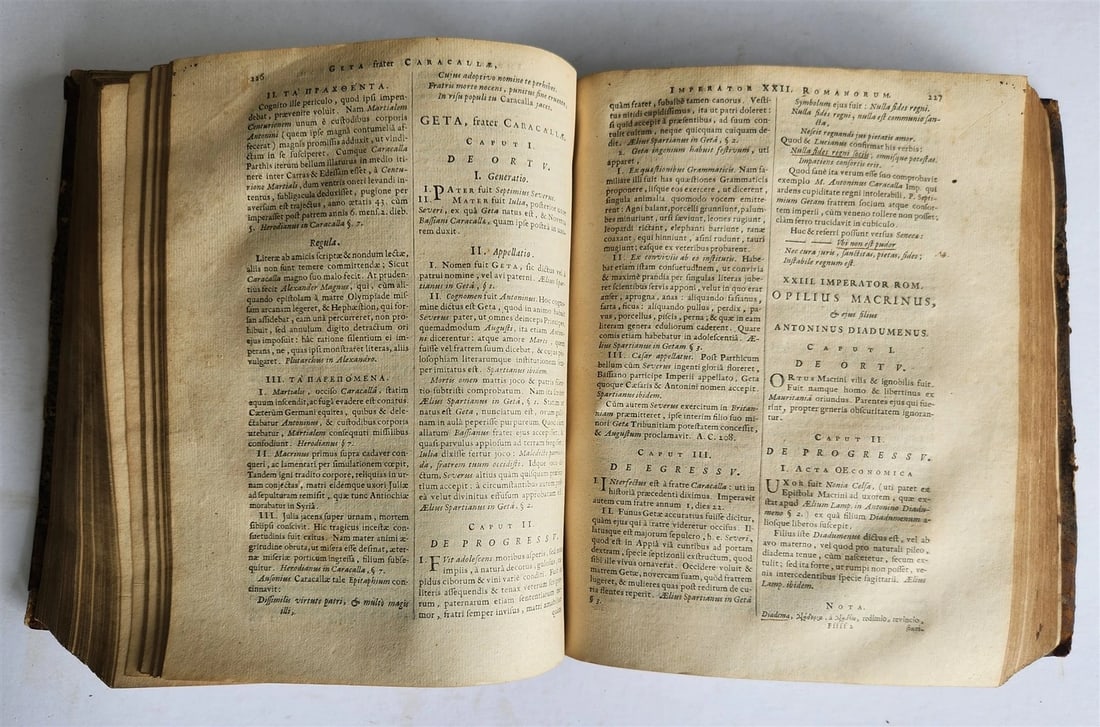 226
GETA frater CARACALLÆ,
II. ΤΑ ΠΡΑΧΘΕΝΤΑ.
Cognito ille periculo, quod ipsi impen-
debat, prævenire voluit. Nam Martialem
Centurionem unum è custodibus corporis
Antonini (quem ipse magnâ contumeliâ af-
fecerat) magnis promissis adduxit, ut vindi-
ctam in se susciperet. Cumque Caracalla
Parthis iterum bellum illaturus in medio iti-
nere inter Carras & Edessam esset, à Centu-
rione Martiale, dum ventris oneri levandi in-
tentus, subligacula deduxisset, pugione per
aversum est trajectus, anno ætatis 43. cùm
imperasset post patrem annis 6. mens. 2. dieb.
5. Herodianus in Caracalla §. 7.
Regula.
Literæ ab amicis scriptæ & nondum lectæ,
aliis non sunt temere committendæ; Sicut
Caracalla magno suo malo fecit. At pruden-
tius fecit Alexander Magnus, qui, cùm ali-
quando epistolam à matre Olympiade mis-
sam arcanam legeret, & Hephæstion, qui for-
san assidebat, eam unà percurreret, non pro-
hibuit, sed annulum digito detractum ori
ejus imposuit: hâc ratione silentium ei im-
perans, ne, quas ipsi monstraret literas, aliis
vulgaret. Plutarchus in Alexandro.
III. ΤΑ ΠΑΡΕΠΟΜΕΝΑ.
I. Martialis, occiso Caracallâ, statim
equum inscendit, ac fugâ evadere est conatus.
Cæterùm Germani equites, quibus & dele-
ctabatur Antoninus, & custodibus corporis
utebatur, Martialem consequuti missilibus
confodiunt. Herodianus § 7.
II. Macrinus primus supra cadaver con-
queri, ac lamentari per simulationem cœpit.
Tandem igni tradito corpore, reliquias in ur-
nam conjectas, matri eidemque uxori Juliæ
ad sepulturam remisit, quæ tunc Antiochiæ
morabatur in Syriâ.
III. Julia jacens super urnam, mortem
sibiipsi conscivit. Hic tragicus incestæ con-
suetudinis fuit exitus. Nam mater animi æ-
gritudine obruta, ut misera esse desinat, æter-
næ miseriæ porticum ingressa, filium subse-
quitur. Herodianus in Caracalla, § 7.
Ausonius Caracallæ tale Epitaphium con-
cinnavit:
Dissimilis virtute patri, & multò magis
illi,
Cujus adoptivo nomine te perhibes.
Fratris morte nocens, punitus fine cruento,
In risu populi tu Caracalla jaces.
GETA, frater CARACALLÆ.
CAPUT I.
DE ORTV.
I. Generatio.
I. PATER fuit Septimius Severus.
II. MATER fuit Iulia, posterior uxor
Severi, ex quâ Geta natus est, & Noverca
Bassiani Caracallæ, quam ipse postea in uxo-
rem duxit.
II. Appellatio.
I. Nomen fuit GETA, sic dictus vel à
patrui nomine, vel avi paterni. Ælius Spar-
tianus in Getâ, § 1.
II. Cognomen fuit Antoninus. Hoc cogno-
mine dictus est Geta, quod in animo habuit
Severus pater, ut omnes deinceps Principes,
quemadmodum Augusti, ita etiam Antoni-
ni dicerentur: atque amore Marci, quem
fuisse vel fratrem suum dicebat, & cujus phi-
losophiam literarumque institutionem sem-
per imitatus est. Spartianus ibidem.
Mortis omen matris joco & patris filio-
rio subtristi comprobatum. Nam Geta
natus est Geta, nunciatum est, ovum galli-
nam in aulâ peperisse purpureum. Quod
allatum Bassianus frater ejus accepit:
quasi parvulus applosum ad terram fregisset:
Julia dixisse fertur joco: Maledicte parrici-
da, fratrem tuum occidisti. Idque joco di-
ctum, Severus altius quàm quisquam præsen-
tium accepit: à circumstantibus autem
eâ velut divinitus effusum approbatum est.
Ælius Spartianus in Getâ, § 2.
CAPUT II.
DE PROGRESSV.
I. FVit adolescens moribus asperis, sed non
impiis, à naturâ decorus, gulosus, cu-
pidus ciborum & vini variè conditi. Spartian.
literis assequendis & tenax veterum scripto-
rum, paternarum etiam sententiarum me-
mor, fratri semper invisus, matri amabilior
quàm
IMPERATOR XXII. ROMANORUM.
227
quàm frater, subalbè tamen canorus. Vesti-
tus nitidi cupidissimus, ita ut patri doleret:
si quid accepit à præsentibus, ad suum con-
tulit cultum, neque quicquam cuiquam de-
dit. Ælius Spartianus in Getâ, § 2.
2. Geta ingenium habuit festivum, uti
apparet,
I. Ex quæstionibus Grammaticis. Nam fa-
miliare illi fuit has quæstiones Grammaticis
proponere, jisque eos exercere, ut dicerent,
singula animalia quomodo vocem emitte-
rent: Agni balant, porcelli grunniunt, palum-
bes minuriunt, ursi sæviunt, leones rugiunt,
leopardi rictant, elephanti barriunt, ranæ
coaxant, equi hinniunt, asini rudunt, tauri
mugiunt; easque ex veteribus probarent.
II. Ex conviviis ab eo institutis. Habe-
bat etiam istam consuetudinem, ut convivia
& maximè prandia per singulas literas jube-
ret scientibus servis apponi, velut in quo erat
anser, aprugna, anas: aliquando fasianus,
farta, ficus: aliquando pullus, perdix, pa-
vus, porcellus, piscis, perna; & quæ in eam
literam genera eduliorum caderent. Quare
comis etiam habebatur in adolescentiâ. Æ-
lius Spartianus in Getam § 5.
III. Cæsar appellatur. Post Parthicum
bellum cùm Severus ingenti gloriâ floreret,
Bassiano participe Imperii appellato, Geta
quoque Cæsaris & Antonini nomen accepit.
Spartianus ibidem.
Cùm autem Severus exercitum in Britan-
niam præmitteret, ipse interim filio suo mi-
nori Getæ Tribunitiam potestatem concessit,
& Augustum proclamavit. A.C. 208.
CAPUT III.
DE EGRESSV.
I. INterfectus est à fratre Caracalla: uti in
historiâ præcedenti diximus. Imperavit
autem cum fratre annum 1, dies 22.
II. Funus Getæ accuratius fuisse dicitur,
quàm ejus qui à fratre videretur occisus. Il-
latusque est majorum sepulcro, h. e. Severi,
quod est in Appiâ viâ euntibus ad portam
dextram, specie septizonii exstructum, quod
sibi ille vivus ornaverat. Occidere voluit &
matrem Getæ, novercam suam, quòd fratrem
lugeret, & mulieres quas post reditum de cu-
ria flentes reperit. Ælius Spartianus in Getâ
§ 3.
Symbolum ejus fuit: Nulla fides regni.
Nulla fides regni, nulla est communio san-
cta,
Nescit regnandi jus pietatis amor.
Quod & Lucianus confirmat his verbis:
Nulla fides regni sociis, omnisque potestas
Impatiens consortis erit.
Quod sanè ita verum esse suo comprobavit
exemplo M. Antoninus Caracalla Imp. qui
ardens cupiditate regni intolerabili, P. Septi-
mium Getam fratrem socium atque consor-
tem imperii, cùm veneno tollere non posset,
clàm ferro trucidavit in cubiculo.
Huc & referri possunt versus Seneca:
Vbi non est pudor
Nec cura juris, sanctitas, pietas, fides;
Instabile regnum est.
XXIII IMPERATOR ROM.
OPILIUS MACRINUS,
& ejus filius
ANTONINUS DIADUMENUS.
CAPUT I.
DE ORTV.
ORTUS Macrini vilis & ignobilis fuit.
Fuit namque homo & libertinus ex
Mauritania oriundus. Parentes ejus qui fue-
rint, propter generis obscuritatem ignoran-
tur.
CAPUT II.
DE PROGRESSV.
I. ACTA OECONOMICA
UXOR fuit Nonia Celsa, (uti patet ex
Epistola Macrini ad uxorem, quæ ex-
stat apud Ælium Lamp. in Antonino Diadu-
meno § 2.) ex quâ filium Diadumenum a-
liosque liberos suscepit.
Filius iste Diadumenus dictus est, vel ab
avo materno, vel quòd pro naturali pileo,
diadema tenue, cùm nasceretur, secum ex-
tulit; sed ita forte, ut rumpi non posset, ve-
nis intercedentibus specie sagittarii. Ælius
Lamp. ibidem.
NOTA.
Diadema, redimio, revincio,
Ffff 2